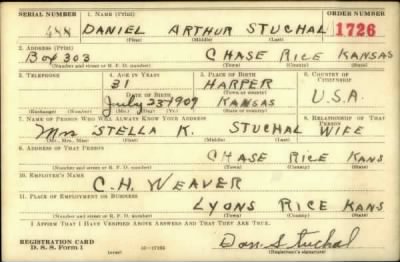 SERIAL NUMBER 1. NAME (Print) ORDER NUMBER
488 DANIEL ARTHUR STUCHAL 1726
(First) (Middle) (Last)
2. ADDRESS (Print)
Box 303 CHASE RICE KANSAS
(Number and street or R. F. D. number) (Town) (County) (State)
3. TELEPHONE 4. AGE IN YEARS 5. PLACE OF BIRTH 6. COUNTRY OF CITIZENSHIP
31 HARPER
DATE OF BIRTH (Town or county)
July 23 1909 KANSAS U.S.A.
(Exchange) (Number) (Mo.) (Day) (Yr.) (State or country)
7. NAME OF PERSON WHO WILL ALWAYS KNOW YOUR ADDRESS 8. RELATIONSHIP OF THAT PERSON
Mrs STELLA K. STUCHAL WIFE
(Mr., Mrs., Miss) (First) (Middle) (Last)
9. ADDRESS OF THAT PERSON
CHASE RICE KANS
(Number and street or R. F. D. number) (Town) (County) (State)
10. EMPLOYER'S NAME
C. H. WEAVER
11. PLACE OF EMPLOYMENT OR BUSINESS
LYONS RICE KANS
(Number and street or R. F. D. number) (Town) (County) (State)
I AFFIRM THAT I HAVE VERIFIED ABOVE ANSWERS AND THAT THEY ARE TRUE.
REGISTRATION CARD
D. S. S. Form 1 Dan Stuchal
(Registrant's signature)